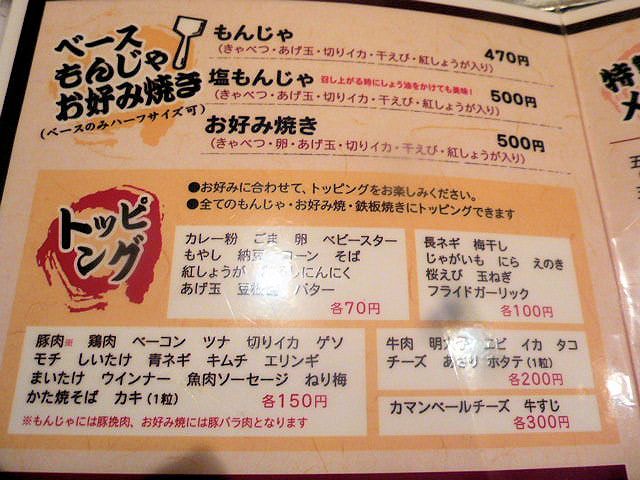 ベース
もんじゃ
お好み焼き
(ベースのみハーフサイズ可)
もんじゃ 470円
(きゃべつ・あげ玉・切りイカ・干えび・紅しょうが入り)
塩もんじゃ 召し上がる時にしょう油をかけても美味! 500円
(きゃべつ・あげ玉・切りイカ・干えび・紅しょうが入り)
お好み焼き 500円
(きゃべつ・卵・あげ玉・切りイカ・干えび・紅しょうが入り)
トッピ
ング
●お好みに合わせて、トッピングをお楽しみください。
●全てのもんじゃ・お好み焼・鉄板焼きにトッピングできます
カレー粉 ごま 卵 ベビースター
もやし 納豆 コーン そば
紅しょうが おろしにんにく
あげ玉 バター
各70円
長ネギ 梅干し
じゃがいも にら えのき
桜えび 玉ねぎ
フライドガーリック
各100円
豚肉※ 鶏肉 ベーコン ツナ 切りイカ ゲソ
モチ しいたけ 青ネギ キムチ エリンギ
まいたけ ウインナー 魚肉ソーセージ ねり梅
かた焼そば カキ(1粒) 各150円
※もんじゃには豚挽肉、お好み焼には豚バラ肉となります
牛肉 明太子 エビ イカ タコ
チーズ あさり ホタテ(1粒)
各200円
カマンベールチーズ 牛すじ
各300円